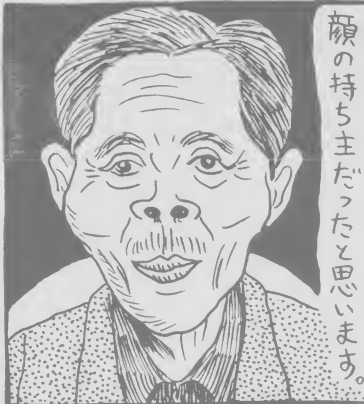 顔の持ち主だったと思います。